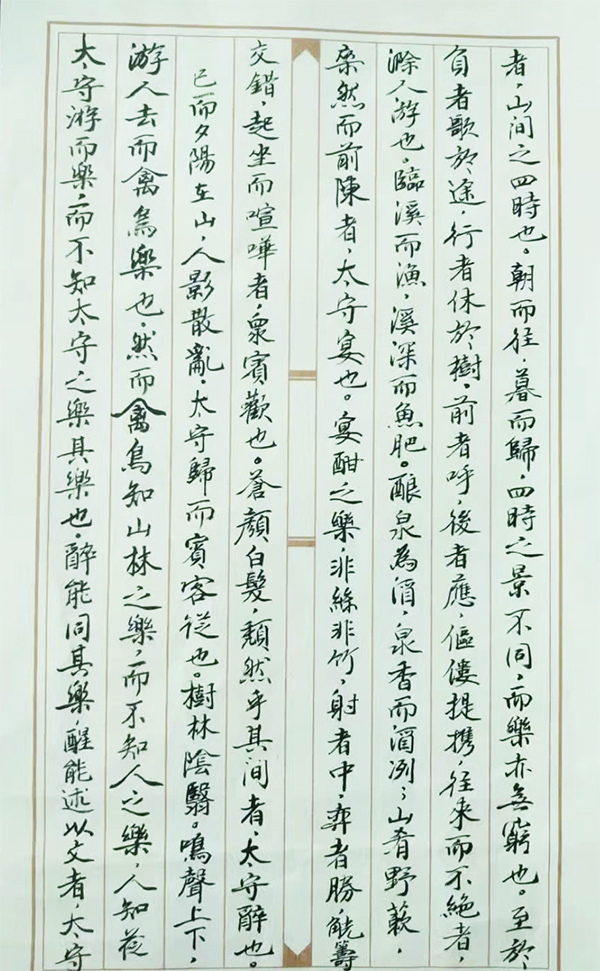 者，山间之四時也。朝而往，暮而歸，四時之景不同，而樂亦無窮也。至於
負者歌於途，行者休於樹，前者呼，後者應，傴僂提携，往來而不絶者，
滁人游也。臨溪而漁，溪深而魚肥。酿泉為酒，泉香而酒洌；山肴野蔌，
雜然而前陳者，太守宴也。宴酣之樂，非絲非竹，射者中，弈者勝，觥籌
交錯，起坐而喧嘩者，衆賓歡也。蒼顏白髮，頹然乎其间者，太守醉也。
已而夕陽在山，人影散亂，太守歸而賓客從也。樹林陰翳。鳴聲上下，
游人去而禽鳥樂也，然而禽鳥知山林之樂，而不知人之樂，人知從
太守游而樂，而不知太守之樂其樂也，醉能同其樂，醒能述以文者，太守